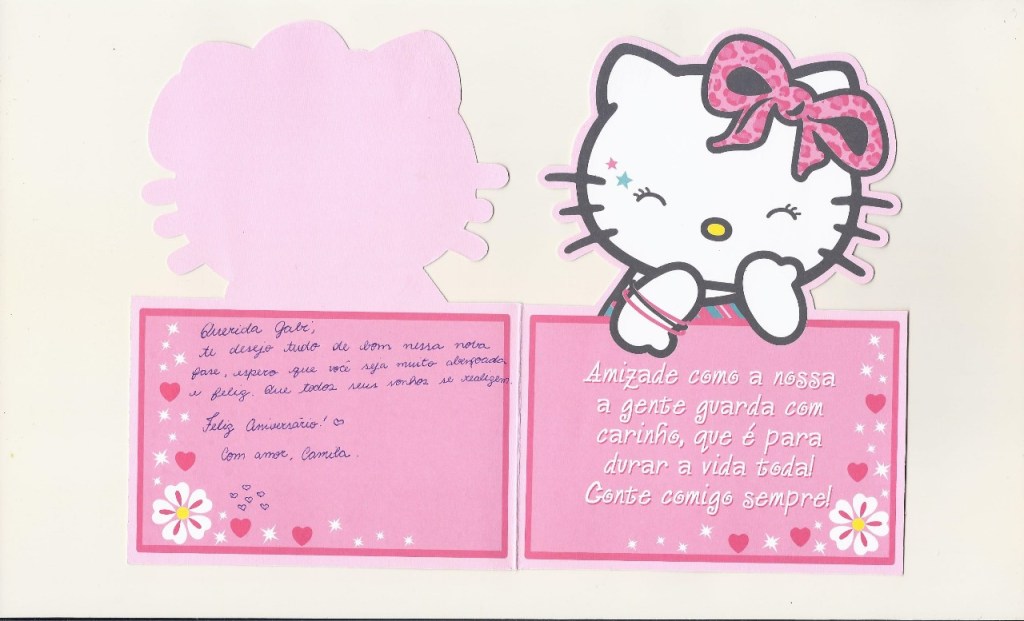 Querida Gabi,
te desejo tudo de bom nessa nova
fase, espero que você seja muito abençoada
e feliz. Que todos seus sonhos se realizem.
Feliz Aniversário! ♡
Com amor, Camila.
Amizade como a nossa
a gente guarda com
carinho, que é para
durar a vida toda!
Conte comigo sempre!